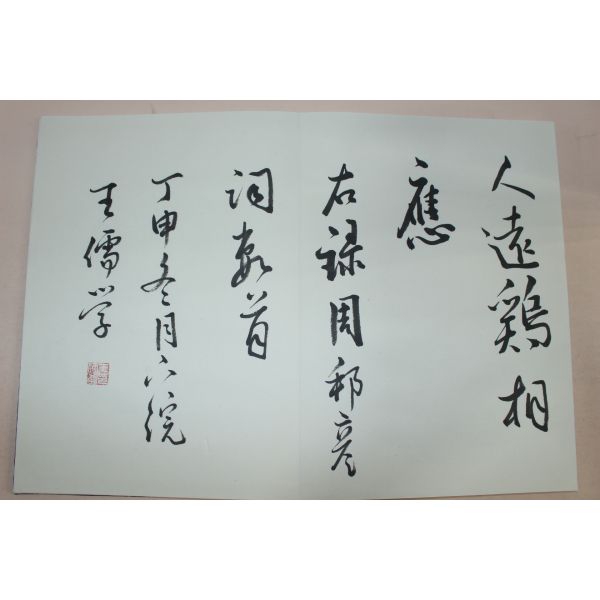 人遠鷄相
應
右録周邦彦
詞數首
丁申冬月下浣
王儒学